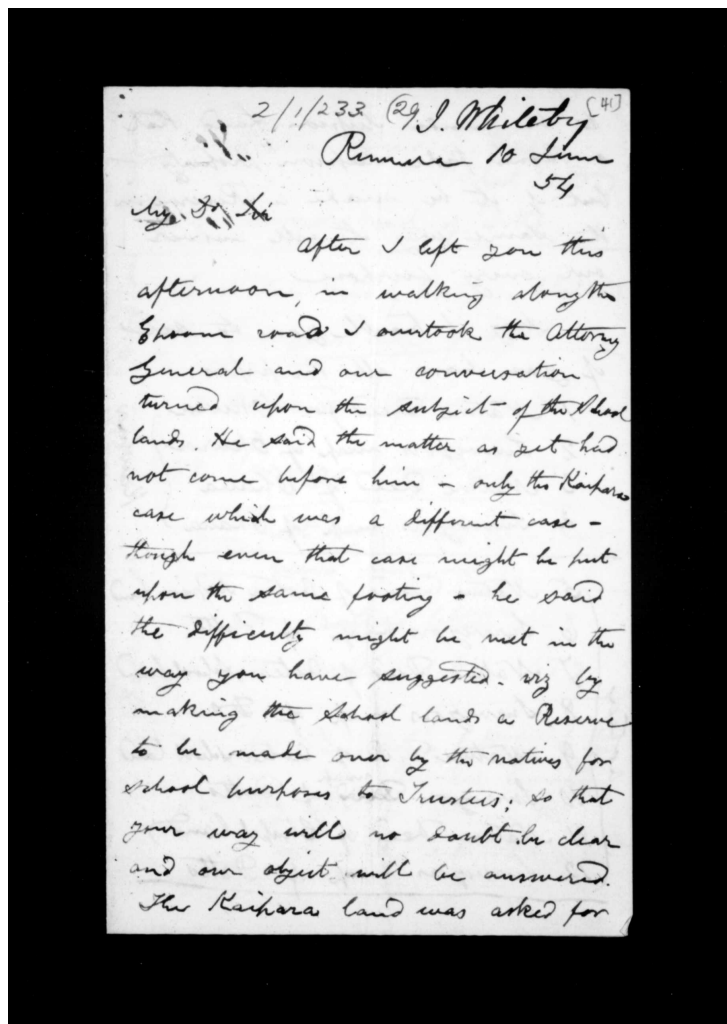 2/1/233 (29) J. Whiteley [41]
Remuera 10 June
54
My Dr Sir
After I left you this
afternoon, in walking along the
Epsom road I overtook the Attorney
General and our conversation
turned upon the subject of the School
lands. He said the matter as yet had
not come before him – only the Kaipara
case which was a different case –
though even that case might be put
upon the same footing – he said
the difficulty might be met in the
way you have suggested. viz by
making the School lands a Reserve
to be made over by the natives for
school purposes to Trustees; so that
your way will no doubt be clear
and our object will be answered.
The Kaipara land was asked for